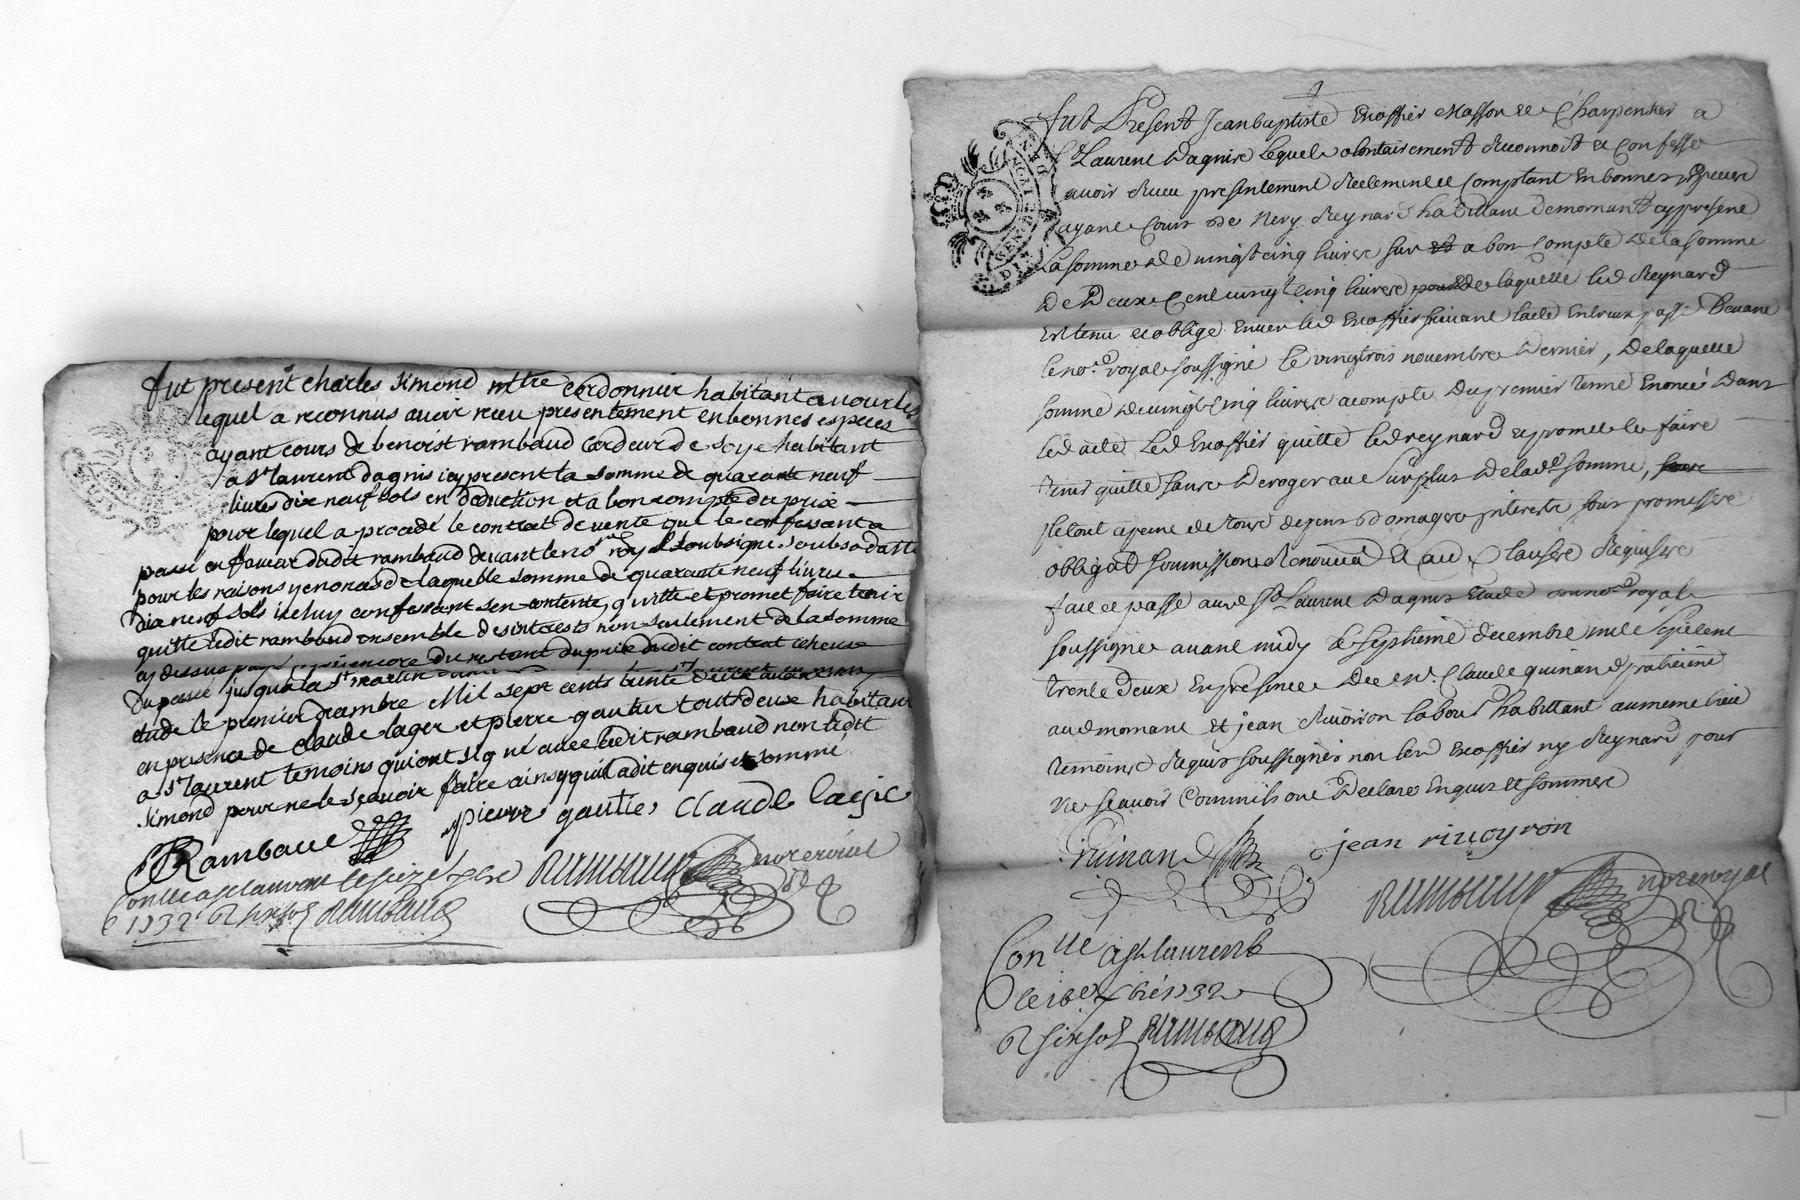 fut present charles simond mtre cordonnier habitant a vourles
lequel a reconnus avoir receu presentement en bonnes especes
ayant cours de benoist rambaud cordeur de soye habitant
a st laurent dagnis icy present la somme de quarante neuf
livres dix neuf sols en deduction et a bon compte du prix
pour lequel a procedé le contrat de vente que le confessant a
passé en faveur dudit rambaud devant le no.re royal soubsigné soubs sa datte
pour les raisons y enoncés de laquelle somme de quarante neuf livres
dix neuf sols iceluy confessant sen contente, quitte et promet faire tenir
quitte ledit rambaud ensemble des interests non seulement de la somme
cy dessus payé encore du restant du prix dudit contrat
du passé jusqua la st martin
etude le premier Xambre Mil sept cents trente deux
en presence de claude lager et pierre gautier touts deux habitans
a st laurent temoins qui ont signé avec ledit rambaud non ledit
simond pour ne le sçavoir faire ainsy quil a dit enquis et sommé
Rambaud pierre gautier Claude lager
Conllé a st laurent le seize Xbre Rambaud nore royal
1732 R six sol Rambaud
fut Present Jean baptiste Exoffier Masson et Charpentier a
St Laurent Dagnis Lequel volontairement reconnoit et Confesse
avoir receu presentement reelement et Comptant en bonnes especes
ayant Cours de Nery Reynard habittant de mornant cy present
La somme de vingt cinq livres sur et a bon Compte de la somme
De Deux Cent vingt cinq livres pour de laquelle led Reynard
est tenu et obligé envers led Exoffier suivant lacte entreux passé Devant
le no.re royal soussigné le vingtrois novembre Dernier, De laquelle
somme de vingt cinq livres a compte du premier terme Enoncé dans
led acte Led Exoffier quitte led reynard et promet le faire
tenir quitte sans Deroger au surplus de lad.e somme,
le tout a peine de tous depens Domages interests sous promesses
obligat soumissions Renonciâ et au.es Clauses Requises
fait et passé aud St Laurent Dagnis Etude du no.re royal
soussigné avant midy le septieme decembre mil sept cent
trente deux en presence De m.e Claude guinand praticien
aud mornant et jean Rivoiron labour habittant au meme lieu
temoins Requis soussignés non led Exoffier ny Reynard pour
Ne scavoir Comm'ils ont Declaré Enquis et sommes
Guinand jean rivoyron
Rambaud nore royal
Conllé a st laurent
le 16e Xbre 1732
R six sol Rambaud